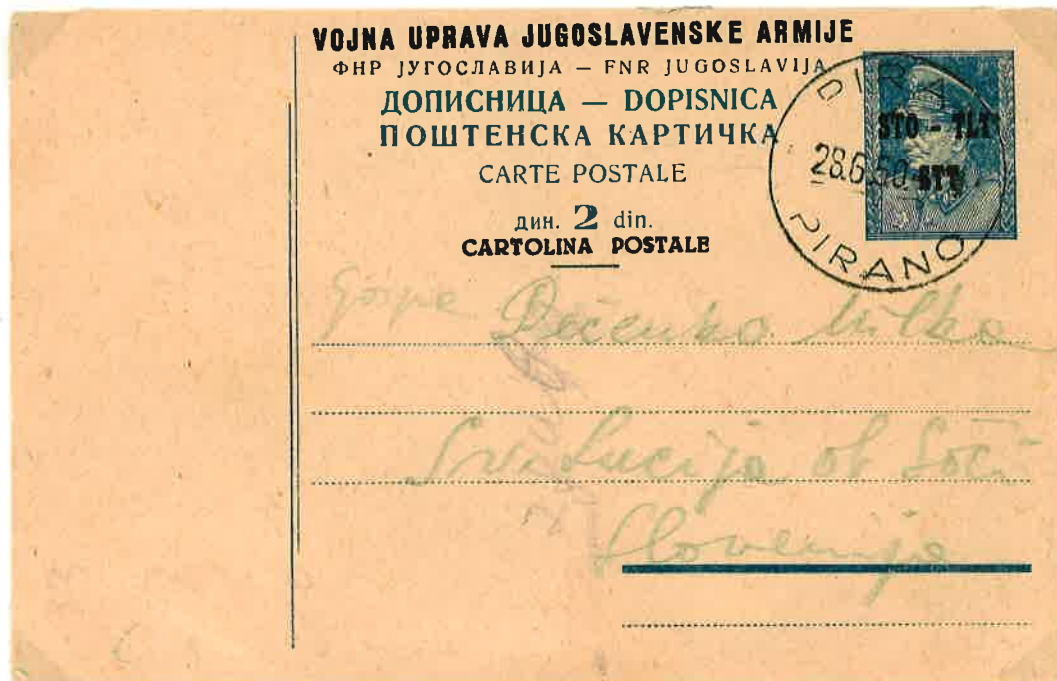 VOJNA UPRAVA JUGOSLAVENSKE ARMIJE
ФНР ЈУГОСЛАВИЈА — FNR JUGOSLAVIJA
ДОПИСНИЦА — DOPISNICA
ПОШТЕНСКА КАРТИЧКА
CARTE POSTALE
дин. 2 din.
CARTOLINA POSTALE
STO - TLT
STT
28.6.50
PIRANO
Milka
Sv. Lucija ob Soči
Slovenija